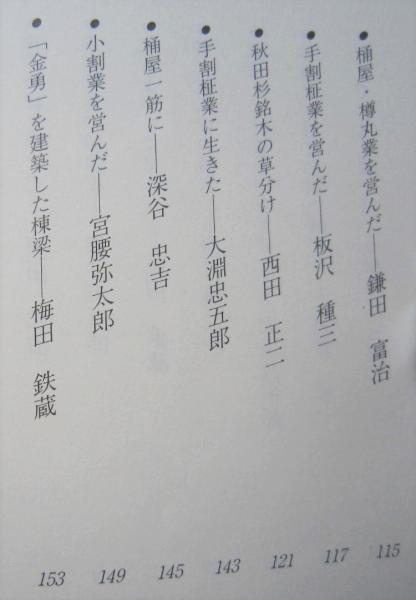 ● 桶屋・樽丸業を営んだ――鎌田 富治 115
● 手割柾業を営んだ――板沢 種三 117
● 秋田杉銘木の草分け――西田 正二 121
● 手割柾業に生きた――大淵忠五郎 143
● 桶屋一筋に――深谷 忠吉 145
● 小割業を営んだ――宮腰弥太郎 149
● 「金勇」を建築した棟梁――梅田 鉄蔵 153